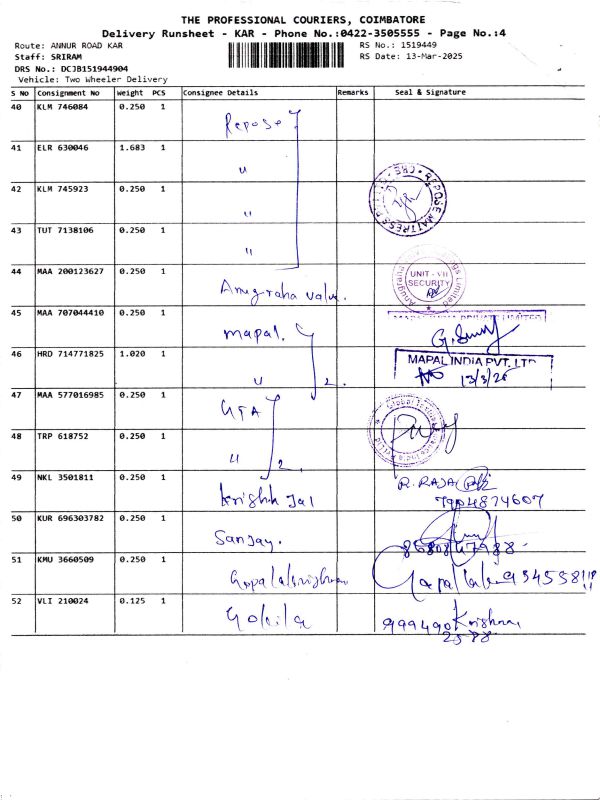 THE PROFESSIONAL COURIERS, COIMBATORE
Delivery Runsheet - KAR - Phone No.:0422-3505555 - Page No.:4
Route: ANNUR ROAD KAR
RS No.: 1519449
Staff: SRIRAM
RS Date: 13-Mar-2025
DRS No.: DCJB151944904
Vehicle: Two Wheeler Delivery
S No Consignment No Weight PCS Consignee Details Remarks Seal & Signature
40 KLM 746084 0.250 1 Repose
41 ELR 630046 1.683 1 "
42 KLM 745923 0.250 1 "
REPOSE MATTRESS
43 TUT 7138106 0.250 1 "
44 MAA 200123627 0.250 1 Anugraha valve.
UNIT - VII
SECURITY
45 MAA 707044410 0.250 1 mapal.
MAPAL INDIA PRIVATE LIMITED
46 HRD 714771825 1.020 1 " 2.
MAPAL INDIA PVT. LTD
47 MAA 577016985 0.250 1 GTA
48 TRP 618752 0.250 1 " 2.
49 NKL 3501811 0.250 1 Krishk Jal
R. RAJA
7904874607
50 KUR 696303782 0.250 1 Sanjay.
51 KMU 3660509 0.250 1 Gopalakrishnan
52 VLI 210024 0.125 1 Gokila
999490 Krishna
2588